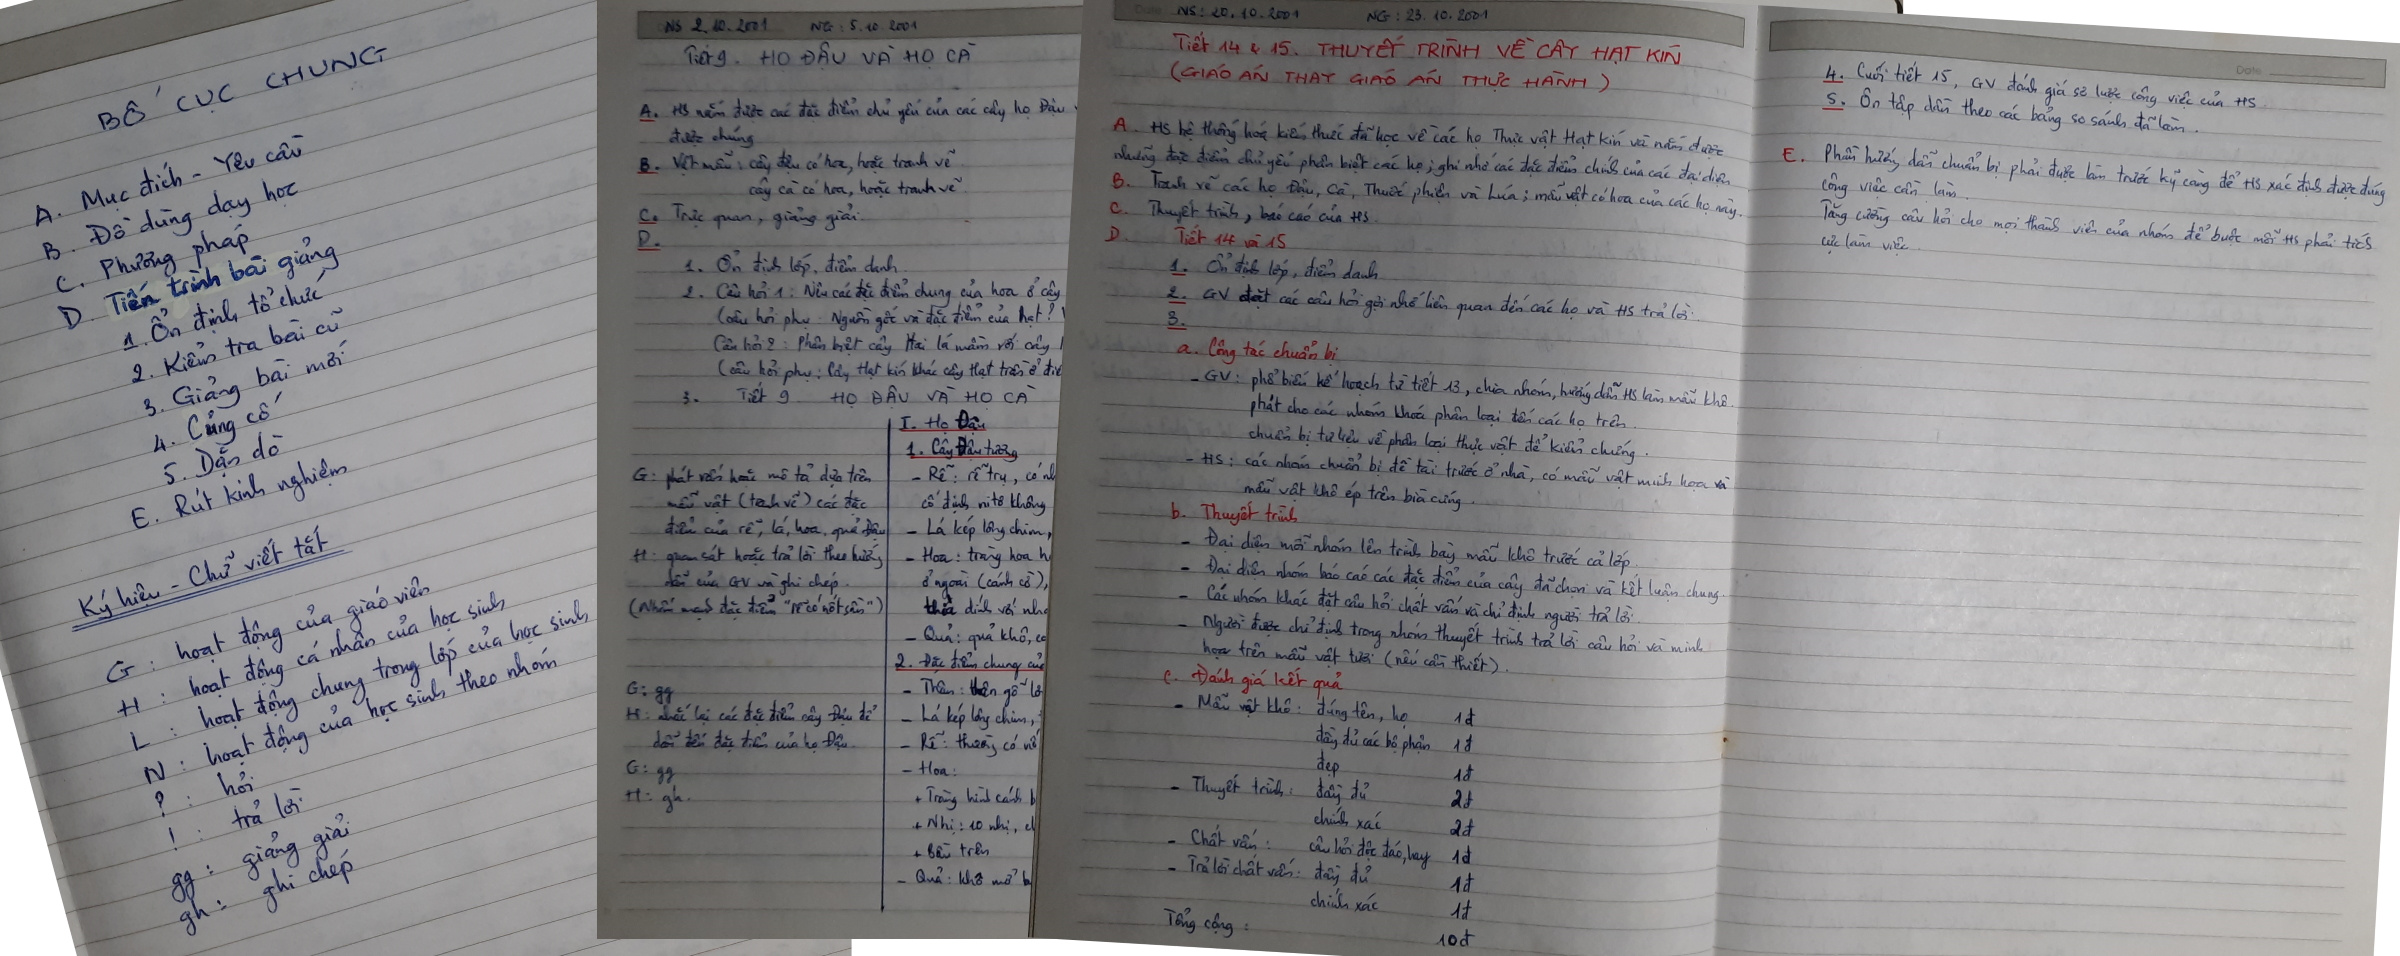 BỐ CỤC CHUNG
A. Mục đích - Yêu cầu
B. Đồ dùng dạy học
C. Phương pháp
D Tiến trình bài giảng
1. Ổn định tổ chức
2. Kiểm tra bài cũ
3. Giảng bài mới
4. Củng cố
5. Dặn dò
E. Rút kinh nghiệm
Ký hiệu - Chữ viết tắt
G : hoạt động của giáo viên
H : hoạt động cá nhân của học sinh
L : hoạt động chung trong lớp của học sinh
N : hoạt động của học sinh theo nhóm
? : hỏi
! : trả lời
gg : giảng giải
gh : ghi chép
NS 2.10.2001 NG : 5.10 2001
Tiết 9. HỌ ĐẬU VÀ HỌ CÀ
A. HS nắm được các đặc điểm chủ yếu của các cây họ Đậu
được chúng
B. Vật mẫu : cây đậu có hoa, hoặc tranh vẽ
cây cà có hoa, hoặc tranh vẽ
C. Trực quan, giảng giải.
D.
1. Ổn định lớp, điểm danh.
2. Câu hỏi 1 : Nêu các đặc điểm chung của hoa ở cây
(câu hỏi phụ : Nguồn gốc và đặc điểm của hạt ?
Câu hỏi 2 : Phân biệt cây Hai lá mầm với cây
(câu hỏi phụ : Cây Hạt kín khác cây Hạt trần ở
3. Tiết 9 HỌ ĐẬU VÀ HỌ CÀ
I. Họ Đậu
1. Cây Đậu tương
G : phát vấn hoặc mô tả dựa trên
mẫu vật (tranh vẽ) các đặc
điểm của rễ, lá, hoa, quả Đậu
H : quan sát hoặc trả lời theo hướng
dẫn của GV và ghi chép.
(Nhấn mạnh đặc điểm "rễ có nốt sần")
- Rễ : rễ trụ, có
cố định nitơ không
- Lá kép lông chim,
- Hoa : tràng hoa
ở ngoài (cánh cờ),
dính với
- Quả : quả khô,
2. Đặc điểm chung của
G : gg
H : nhắc lại các đặc điểm cây Đậu để
dẫn đến đặc điểm của họ Đậu.
G : gg
H : gh.
- Thân : thân gỗ
- Lá kép lông chim,
- Rễ : thường có
- Hoa :
+ Tràng hình cánh
+ Nhị : 10 nhị,
+ Bầu trên
- Quả : khô mở
NS : 20.10.2001 NG : 23.10.2001
Tiết 14 & 15. THUYẾT TRÌNH VỀ CÂY HẠT KÍN
(GIÁO ÁN THAY GIÁO ÁN THỰC HÀNH)
A. HS hệ thống hoá kiến thức đã học về các họ Thực vật Hạt kín và nắm được
những đặc điểm chủ yếu phân biệt các họ ; ghi nhớ các đặc điểm chính của các đại diện
B. Tranh vẽ các họ Đậu, Cà, Thuốc phiện và Lúa ; mẫu vật có hoa của các họ này.
C. Thuyết trình, báo cáo của HS.
D. Tiết 14 và 15
1. Ổn định lớp, điểm danh
2. GV đặt các câu hỏi gợi nhớ liên quan đến các họ và HS trả lời.
3.
a. Công tác chuẩn bị
- GV : phổ biến kế hoạch từ tiết 13, chia nhóm, hướng dẫn HS làm mẫu khô.
phát cho các nhóm khoá phân loại đến các họ trên.
chuẩn bị tư liệu về phân loại thực vật để kiểm chứng.
- HS : các nhóm chuẩn bị đề tài trước ở nhà, có mẫu vật minh họa và
mẫu vật khô ép trên bìa cứng.
b. Thuyết trình
- Đại diện mỗi nhóm lên trình bày mẫu khô trước cả lớp.
- Đại diện nhóm báo cáo các đặc điểm của cây đã chọn và kết luận chung.
- Các nhóm khác đặt câu hỏi chất vấn và chỉ định người trả lời.
- Người được chỉ định trong nhóm thuyết trình trả lời câu hỏi và minh
họa trên mẫu vật tươi (nếu cần thiết).
c. Đánh giá kết quả
- Mẫu vật khô : đúng tên, họ 1đ
đầy đủ các bộ phận 1đ
đẹp 1đ
- Thuyết trình : đầy đủ 2đ
chính xác 2đ
- Chất vấn : câu hỏi độc đáo, hay 1đ
- Trả lời chất vấn : đầy đủ 1đ
chính xác 1đ
Tổng cộng : 10đ
Date
4. Cuối tiết 15, GV đánh giá sơ lược công việc của HS
5. Ôn tập dần theo các bảng so sánh đã làm.
E. Phần hướng dẫn chuẩn bị phải được làm trước kỹ càng để HS xác định được đúng
công việc cần làm.
Tăng cường câu hỏi cho mọi thành viên của nhóm để buộc mỗi HS phải tích
cực làm việc.